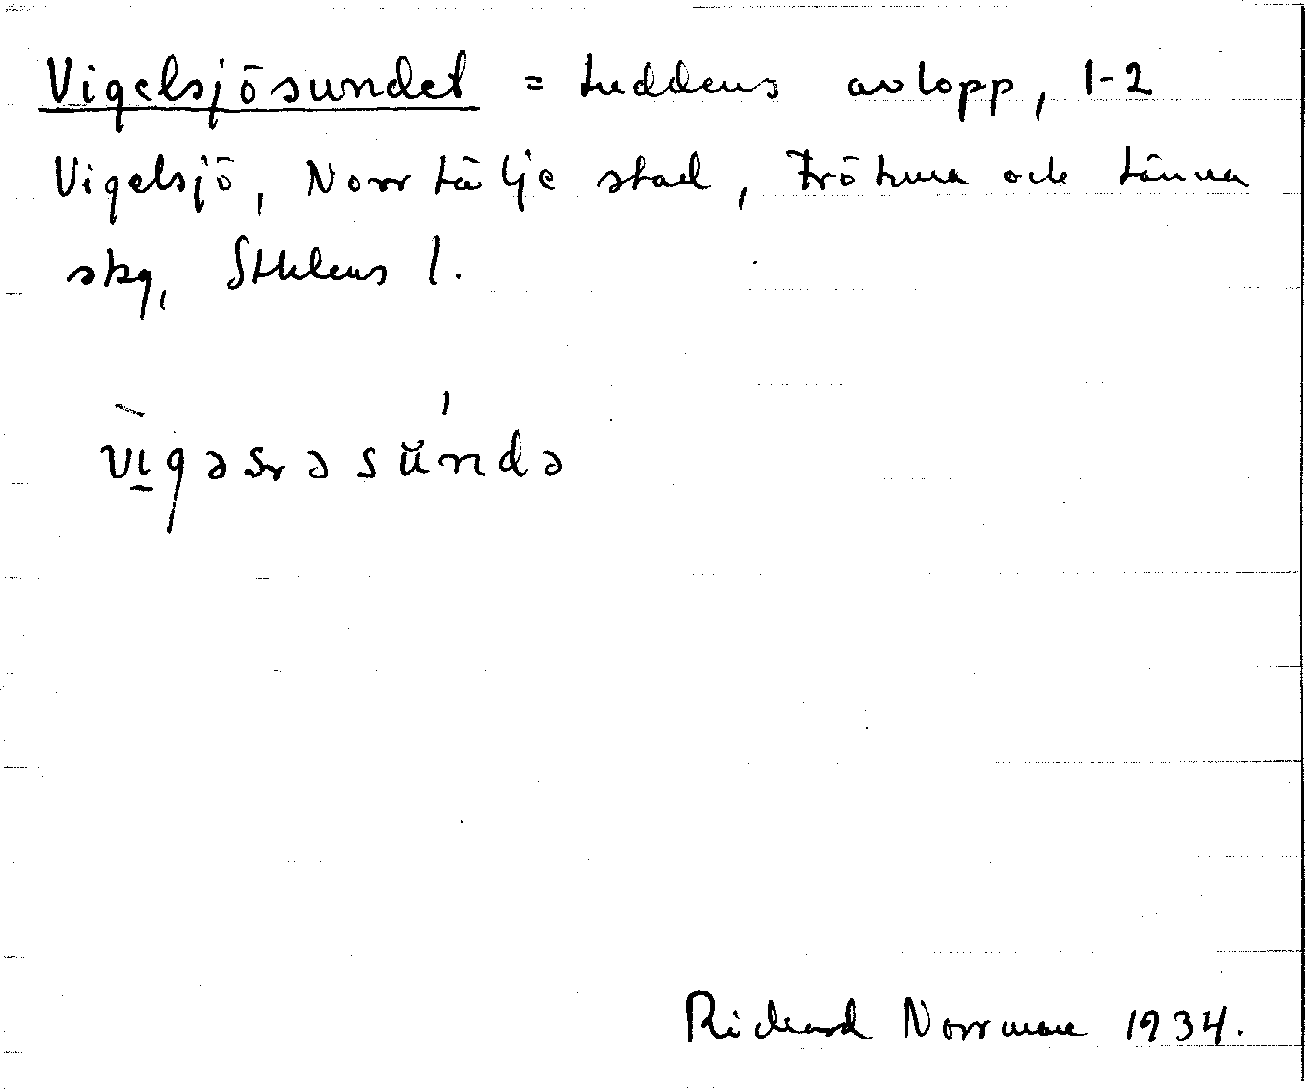 Vigelsjösundet = Luddens avlopp, 1-2
Vigelsjö, Norrtälje stad, Frötuna och Länna
skg, Sthlms l.
vɪgəsrəsúndə
Richard Norrman 1934.